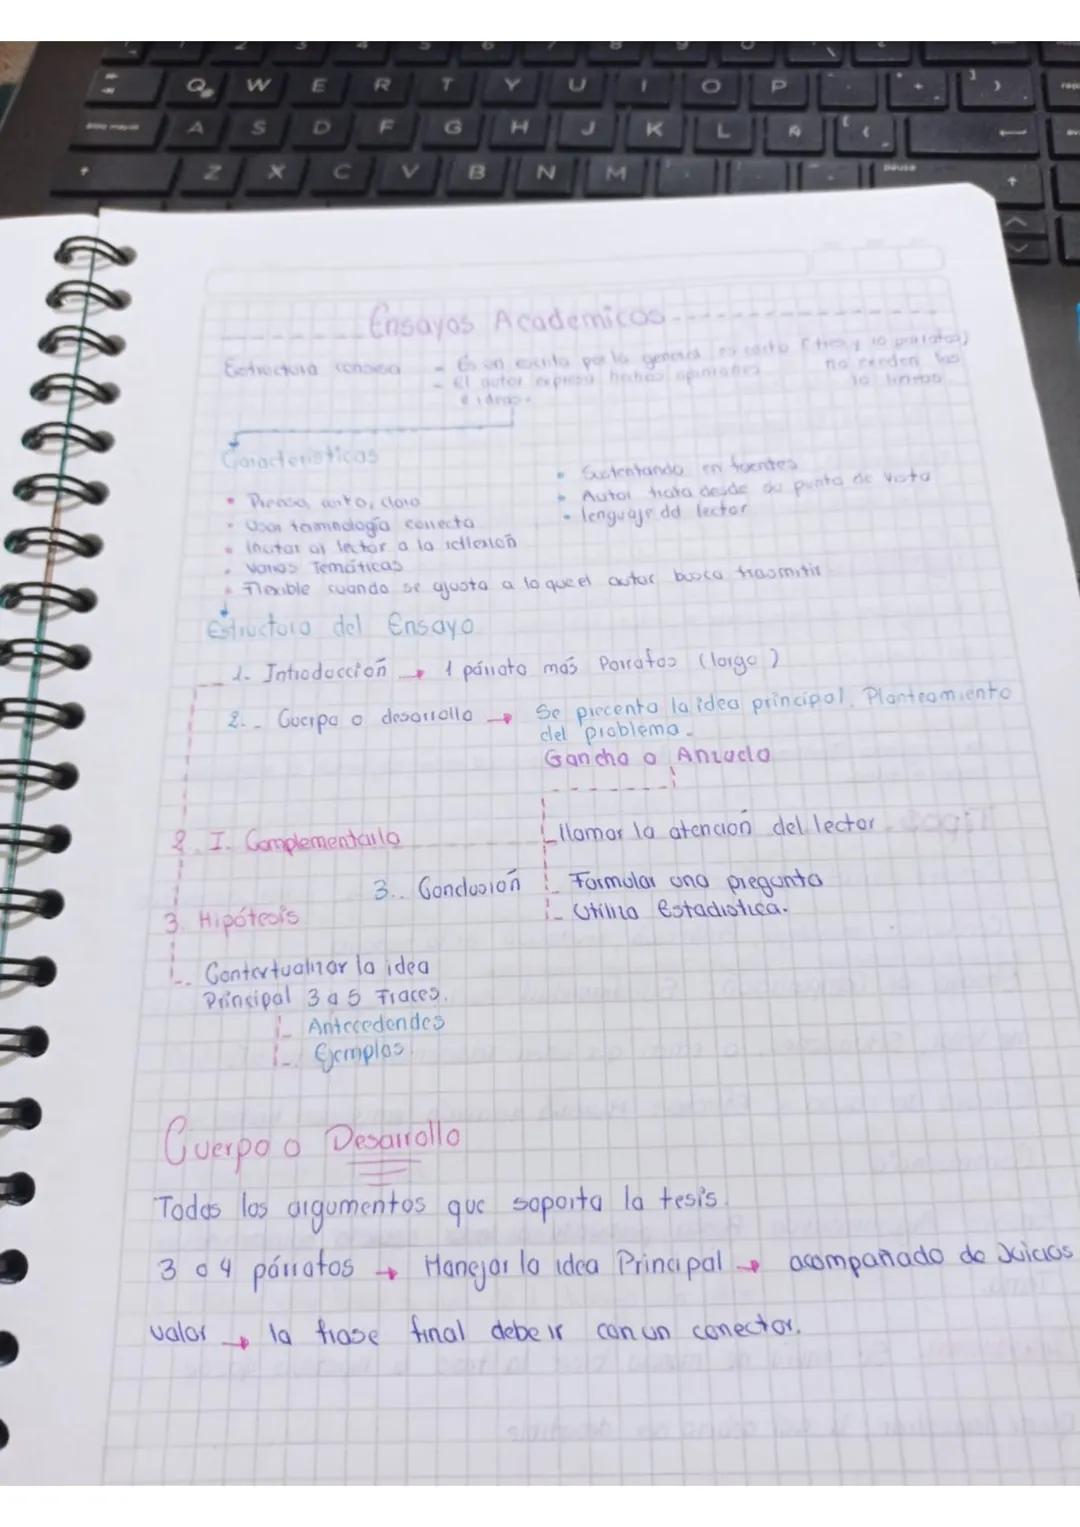 Q W E R T Y U I O P
A S D F G H J K L Ñ
Z X C V B N M
pausa
Ensayos Academicos
Estructura concisa - Es un escrito por lo general es corto (tres y 10 parrafos)
no exeden las
10 lineas
- El autor expresa hechos opiniones
e ideas.
Caracteristicas
• Precisa, corto, claro
• Usar terminología correcta
• Invitar al lector a la reflexión
• Varias Temáticas
• Flexible cuando se ajusta a lo que el autor busca trasmitir
• Sustentando en fuentes
• Autor trata desde su punto de vista
• lenguaje del lector
Estructura del Ensayo
1.- Introducción → 1 párrafo más Parrafos (largo)
2.- Cuerpo o desarrollo → Se precenta la idea principal. Planteamiento
del problema.
Gancho o Anzuelo
llamar la atención del lector
2. I. Complementaria
3.. Conclusión
Formular una pregunta
Utiliza Estadistica.
3. Hipótesis
Contextualizar la idea
Principal 3 a 5 Fraces.
Antecedendes
Ejemplos.
Cuerpo o Desarrollo
Todos los argumentos que soporta la tesis.
3 o 4 párrafos → Manejar la idea Principal → acompañado de Juicios
valor → la frase final debe ir con un conector.